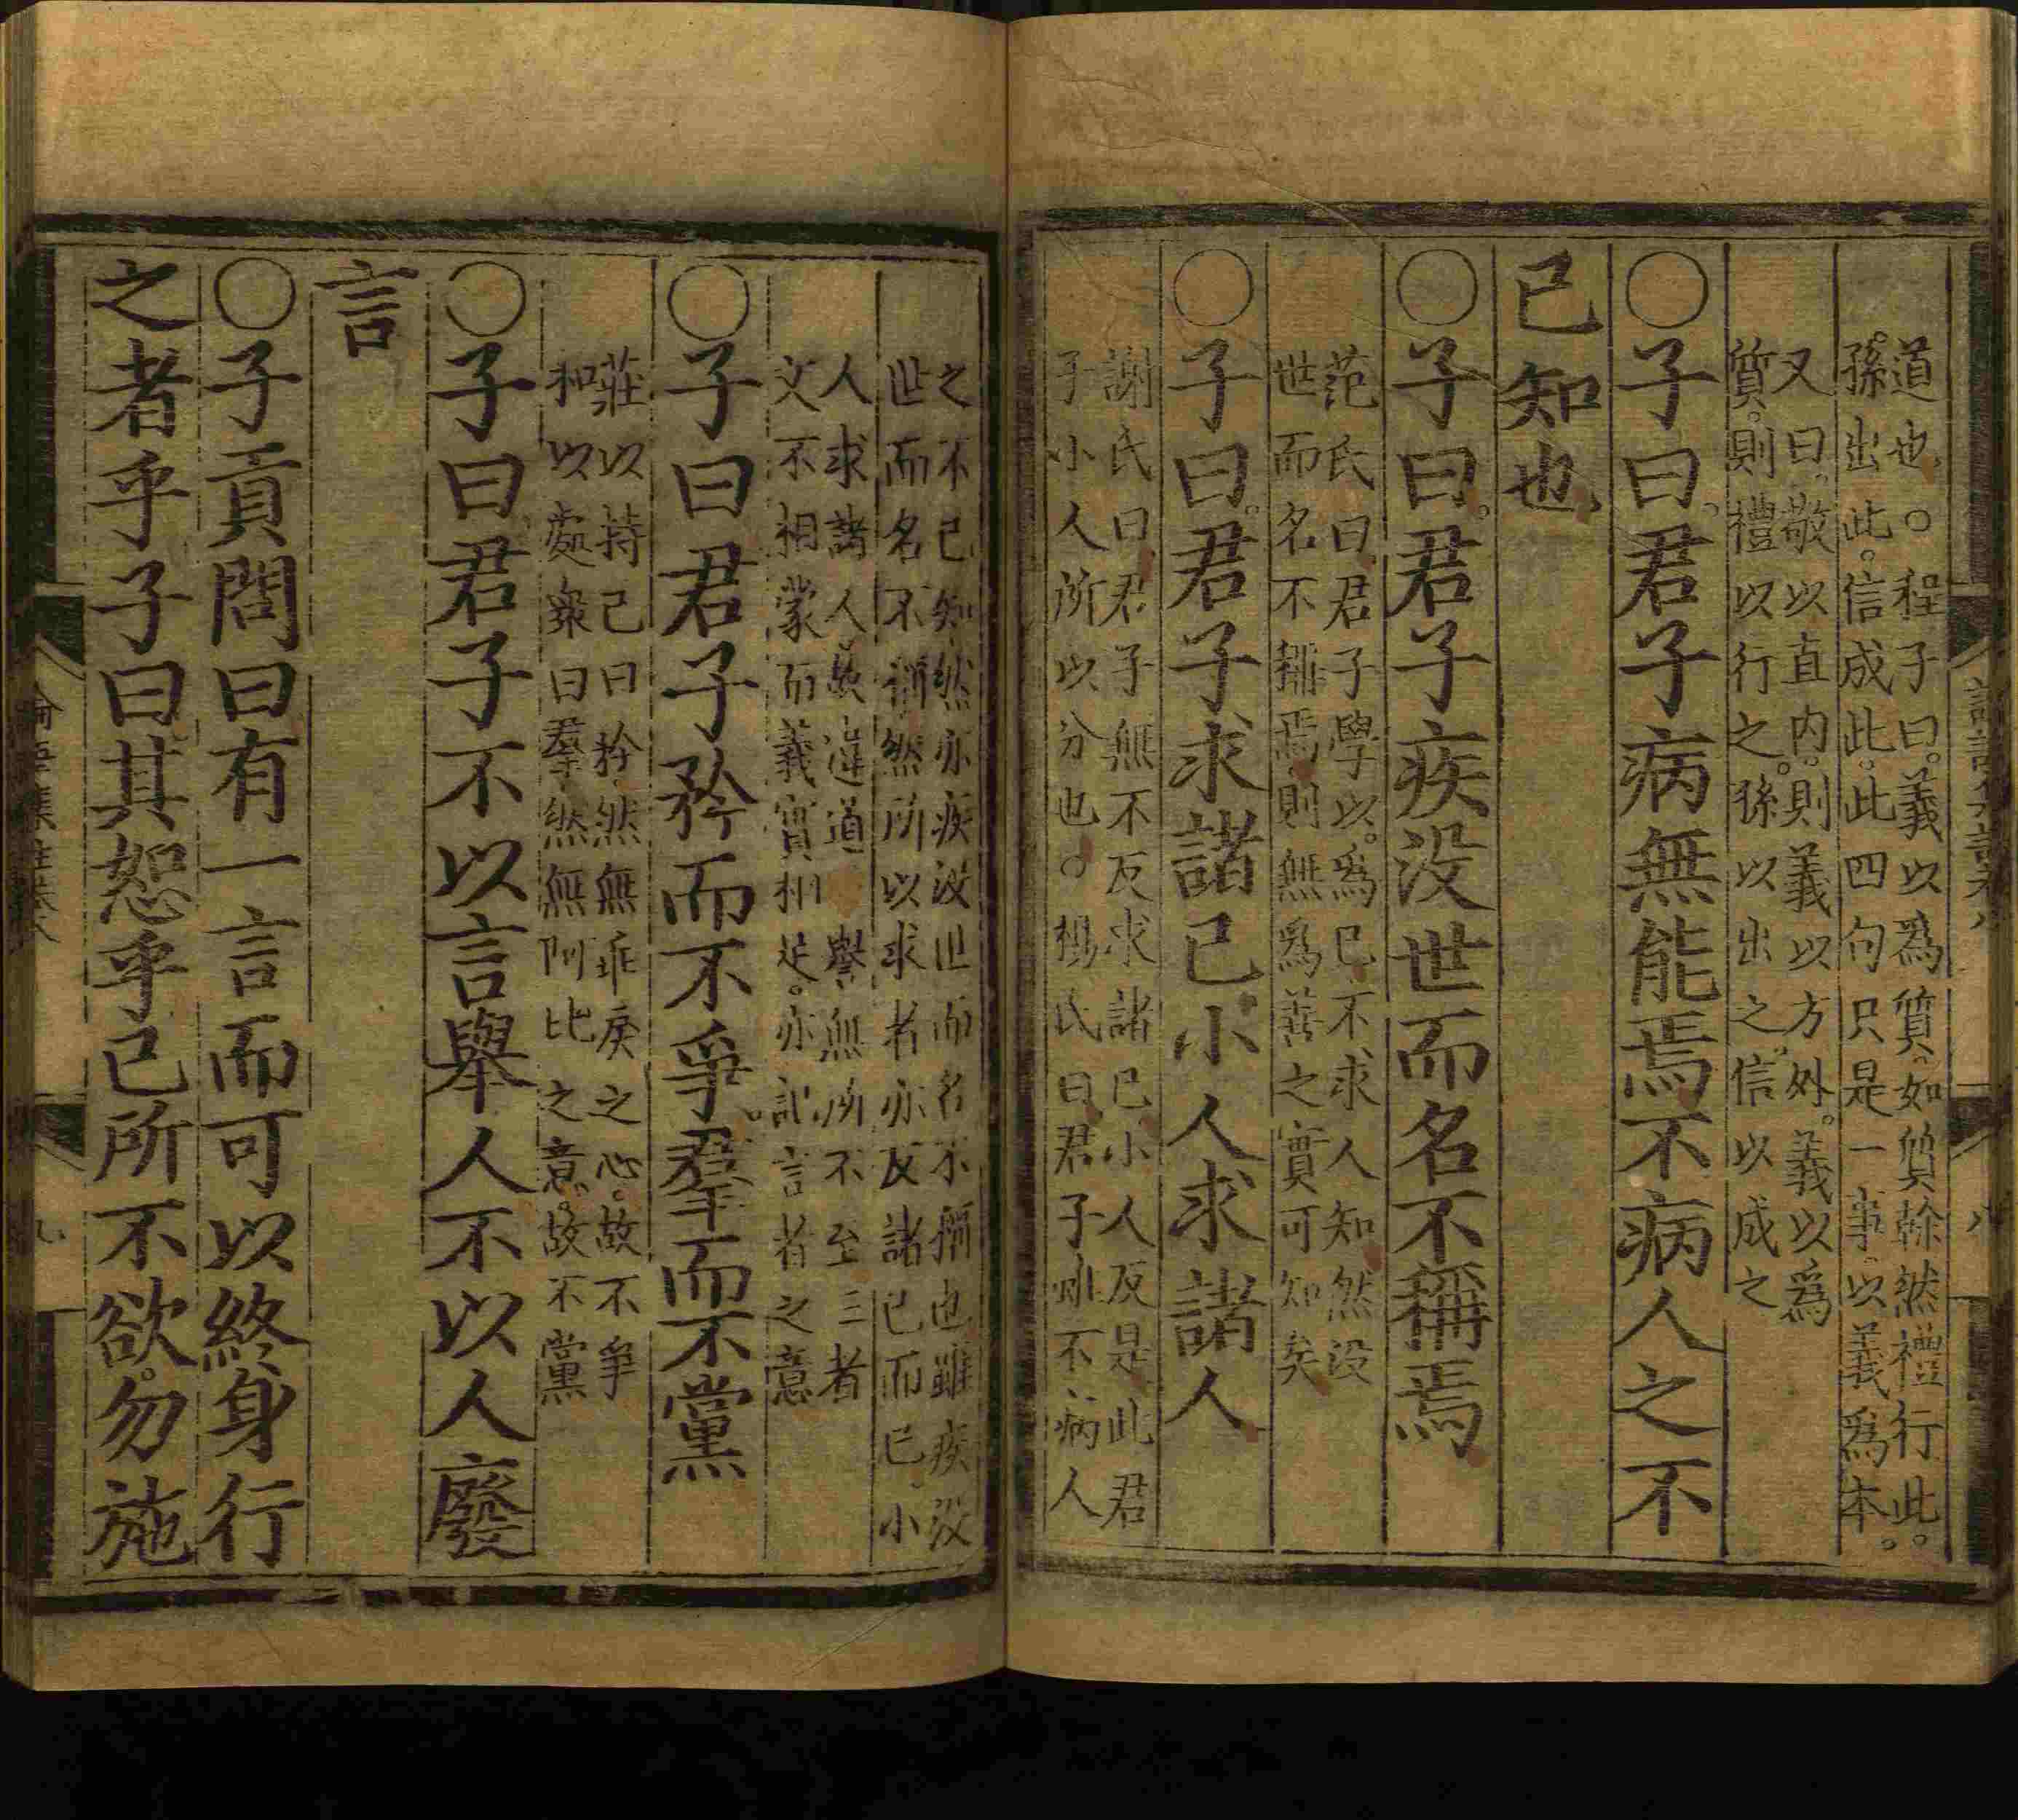 道也○程子曰義以爲質如質幹然禮行此
孫出此信成此此四句只是一事以義爲本
又曰敬以直内則義以方外義以爲
質則禮以行之孫以出之信以成之
○子曰君子病無能焉不病人之不
已知也
○子曰君子疾没世而名不稱焉
范氏曰君子學以爲已不求人知然没
世而名不稱焉則無爲善之實可知矣
○子曰君子求諸已小人求諸人
謝氏曰君子無不反求諸已小人反是此君
子小人所以分也○楊氏曰君子雖不病人
之不已知然亦疾没世而名不稱也雖疾没
世而名不稱然所以求者亦反諸已而已小
人求諸人故違道譽無所不至三者
文不相蒙而義實相足亦記言者之意
○子曰君子矜而不爭羣而不黨
莊以持己曰矜然無乖戾之心故不爭
和以處衆曰羣然無阿比之意故不黨
○子曰君子不以言舉人不以人廢
言
○子貢問曰有一言而可以終身行
之者乎子曰其恕乎已所不欲勿施